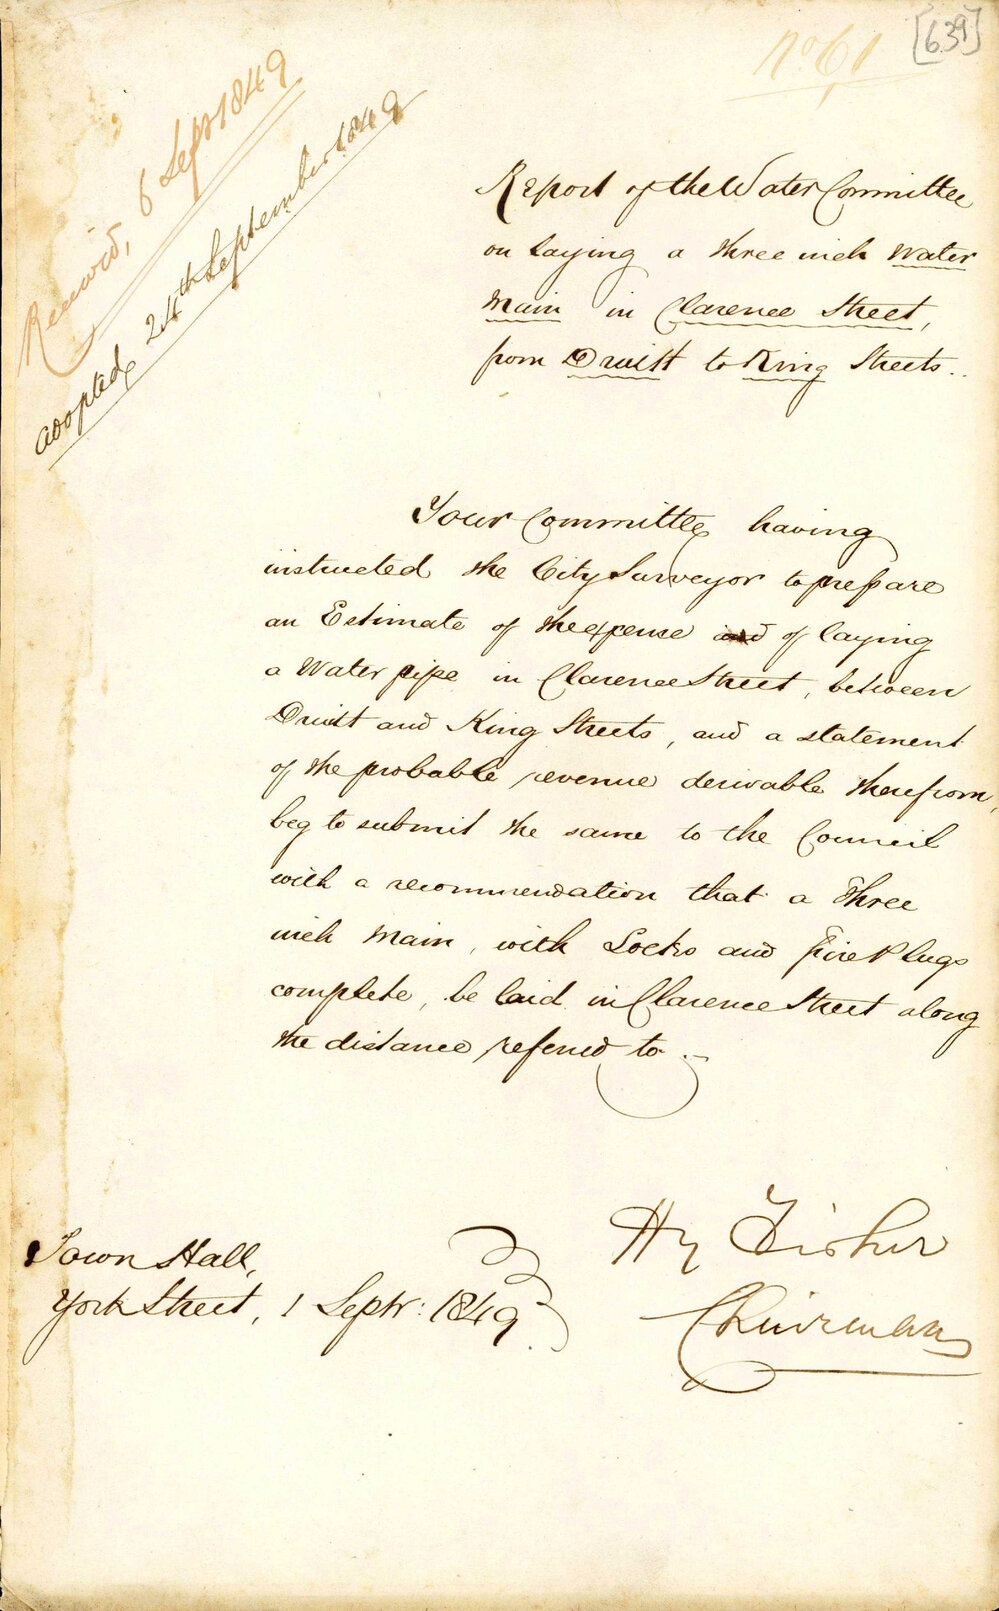 [639]
No 61
Received, 6 Sept 1849
adopted 24th September 1849
Report of the Water Committee
on laying a three inch Water
Main in Clarence Street,
from Druitt to King Streets..
Your Committee having
instructed the City Surveyor to prepare
an Estimate of the expense and of laying
a Water pipe in Clarence Street, between
Druitt and King Streets, and a statement
of the probable revenue derivable therefrom,
beg to submit the same to the Council
with a recommendation that a three
inch Main, with Locks and Fire Plugs
complete, be laid in Clarence Street along
the distance referred to.
Hy Fisher
Chairman
Town Hall,
York Street, 1 Septr: 1849.